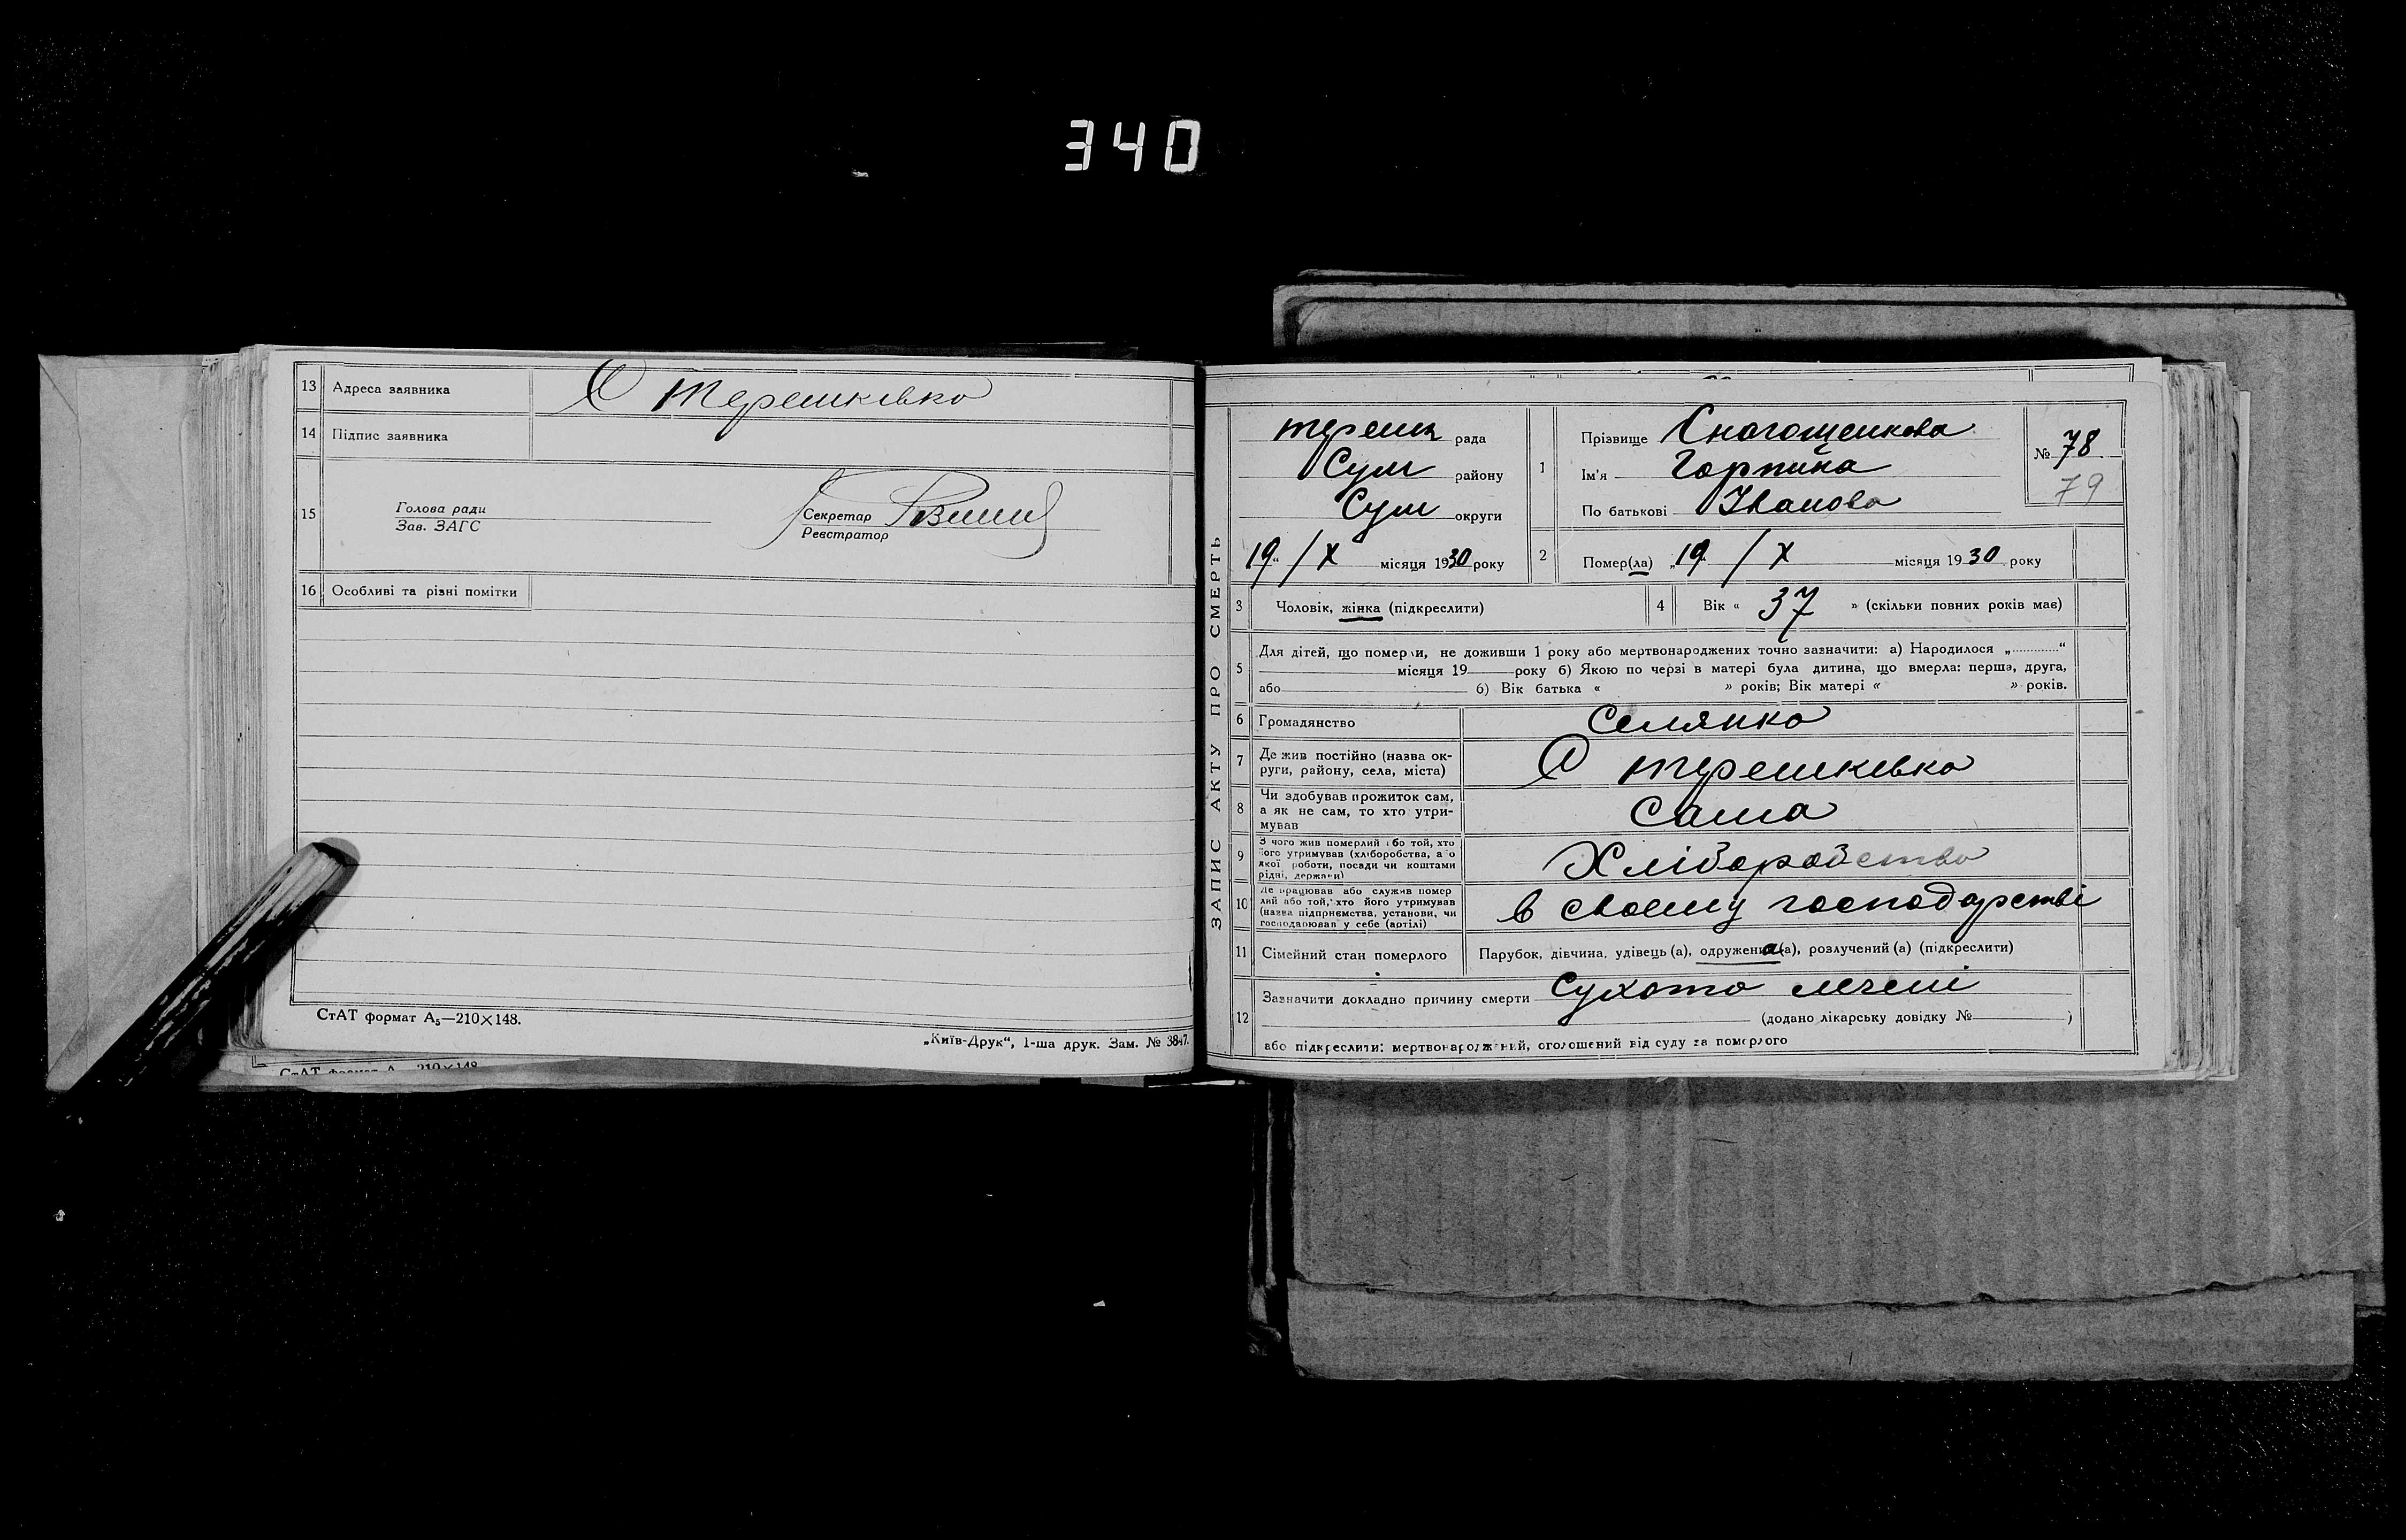 340
13 Адреса заявника С Терешківка
14 Підпис заявника
15 Голова ради
Зав. ЗАГС
Секретар
Реєстратор
16 Особливі та різні помітки
СтАТ формат А₅—210×148.
„Київ-Друк“, 1-ша друк. Зам. № 3847.
СтАТ формат А 210×148
ЗАПИС АКТУ ПРО СМЕРТЬ
Тереш рада
Сум району
Сум округи
19 / X місяця 1930 року
1 Прізвище Снагощенкова
Ім'я Горпина
По батькові Іванова
№ 78
79
2 Помер(ла) „19 / X місяця 1930 року
3 Чоловік, жінка (підкреслити)
4 Вік « 37 » (скільки повних років має)
5 Для дітей, що померли, не доживши 1 року або мертвонароджених точно зазначити: а) Народилося „............“
місяця 19 року б) Якою по черзі в матері була дитина, що вмерла: перша, друга,
або б) Вік батька « » років; Вік матері « » років.
6 Громадянство Селянка
7 Де жив постійно (назва ок-
руги, району, села, міста) С Терешківка
8 Чи здобував прожиток сам,
а як не сам, то хто утри-
мував Сама
9 З чого жив померлий або той, хто
його утримував (хліборобства, або
якої роботи, посади чи коштами
рідні, держави) Хліборобство
10 Де працював або служив помер
лий або той, хто його утримував
(назва підприємства, установи, чи
господарював у себе (артілі) в своєму господарстві
11 Сімейний стан померлого Парубок, дівчина, удівець (а), одружена (а), розлучений (а) (підкреслити)
12 Зазначити докладно причину смерти Сухота лечені
(додано лікарську довідку № )
або підкреслити: мертвонароджений, оголошений від суду за померлого